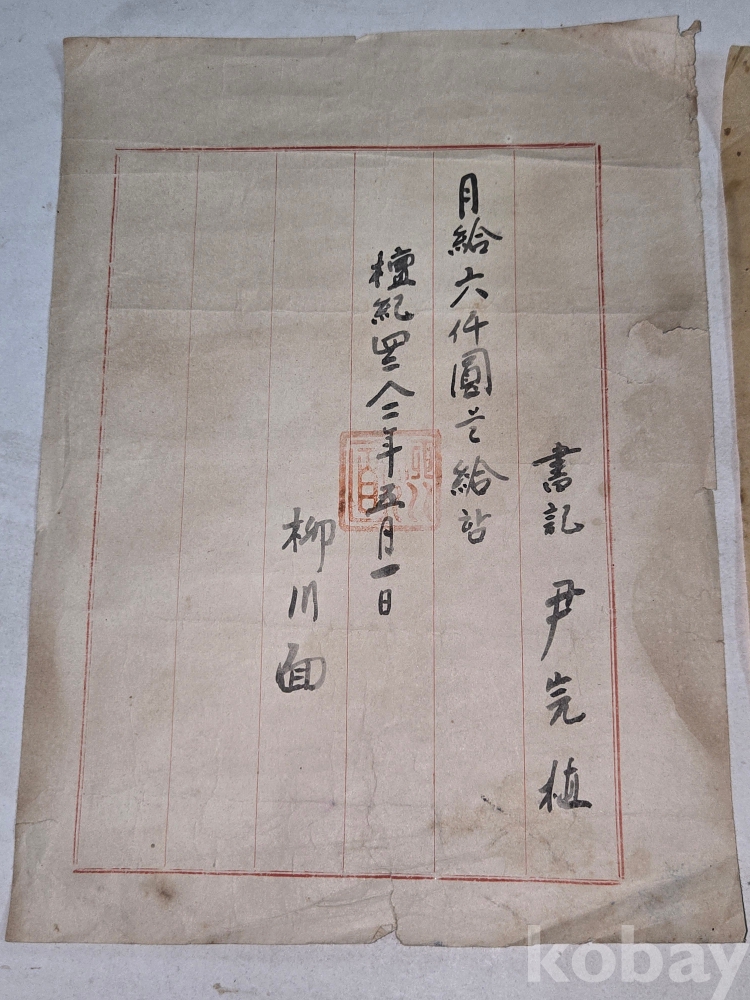 書記 尹完植
月給六仟圓を給함
檀紀四二八二年五月一日
柳川面
kobay